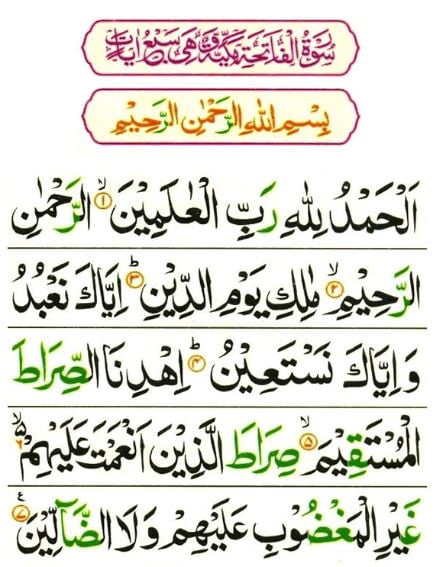 سُوْرَةُ الْفَاتِحَةِ مَكِّيَّةٌ وَّهِيَ سَبْعُ اٰيَاتٍ
بِسْمِ اللهِ الرَّحْمٰنِ الرَّحِيْمِ
اَلْحَمْدُ لِلّٰهِ رَبِّ الْعٰلَمِيْنَ ۙ﴿۱﴾ الرَّحْمٰنِ
الرَّحِيْمِ ۙ﴿۲﴾ مٰلِكِ يَوْمِ الدِّيْنِ ؕ﴿۳﴾ اِيَّاكَ نَعْبُدُ
وَاِيَّاكَ نَسْتَعِيْنُ ؕ﴿۴﴾ اِهْدِنَا الصِّرَاطَ
الْمُسْتَقِيْمَ ۙ﴿۵﴾ صِرَاطَ الَّذِيْنَ اَنْعَمْتَ عَلَيْهِمْ ۙ۵ ۶
غَيْرِ الْمَغْضُوْبِ عَلَيْهِمْ وَلَا الضَّآلِّيْنَ ﴿۷﴾ ع